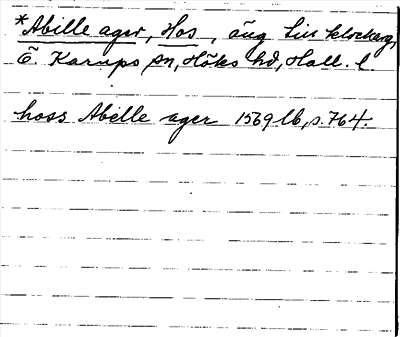 *Abille ager, Hos, äng till klockareg,
Ö. Karups sn, Höks hd, Hall. l.
hoss Abelle ager 1569 lb, s. 764.